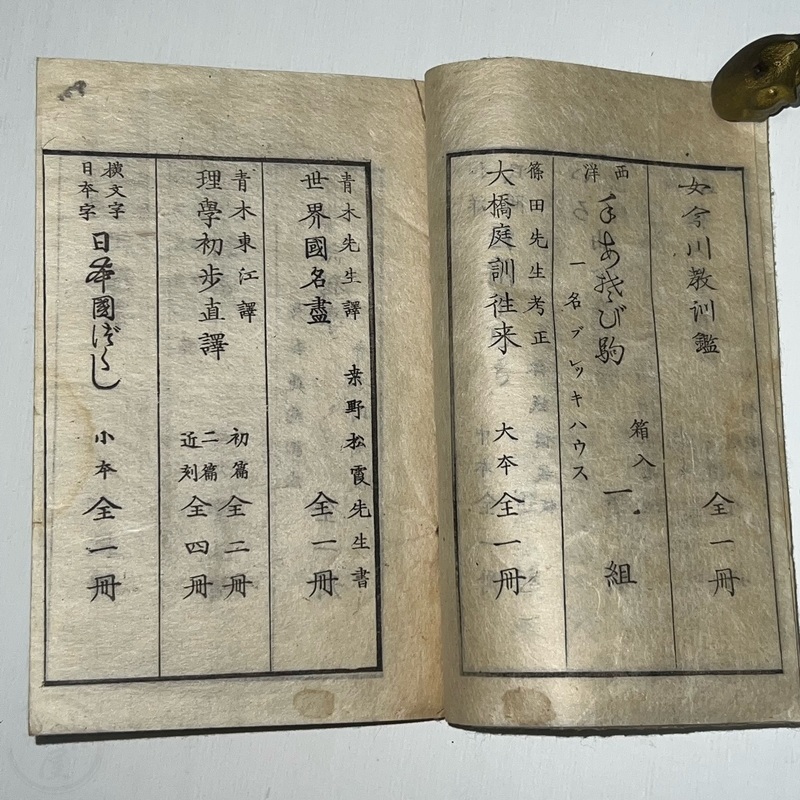 女今川教訓鑑
全一冊
西洋
手あそび駒
一名ブレッキハウス
箱入
一組
篠田先生考正
大橋庭訓徃来
大本
全一冊
青木先生譯
桒野松霞先生書
世界國名盡
全一冊
青木東江譯
理學初歩直譯
初篇全二冊
二篇近刻全四冊
横文字
日本字
日本國づくし
小本
全一冊